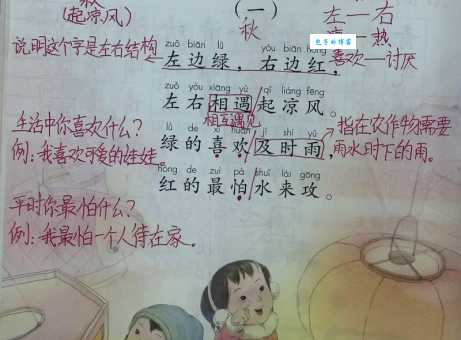 （起凉风）
（一）
秋
左—右
热
喜欢—讨厌
说明这个字是左右结构
zuǒ biān lǜ yòu biān hóng
左边绿，右边红，
zuǒ yòu xiāng yù qǐ liáng fēng
左右相遇起凉风。
相互遇见
生活中你喜欢什么？
例：我喜欢可爱的娃娃。
lǜ de xǐ huān jí shí yǔ
绿的喜欢及时雨，
指在农作物需要
雨水时下的雨。
hóng de zuì pà shuǐ lái gōng
红的最怕水来攻。
平时你最怕什么？
例：我最怕一个人待在家。